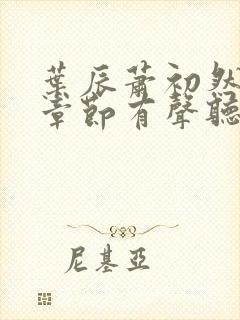 葉辰蕭初然
章節有聲聽
尼基亞